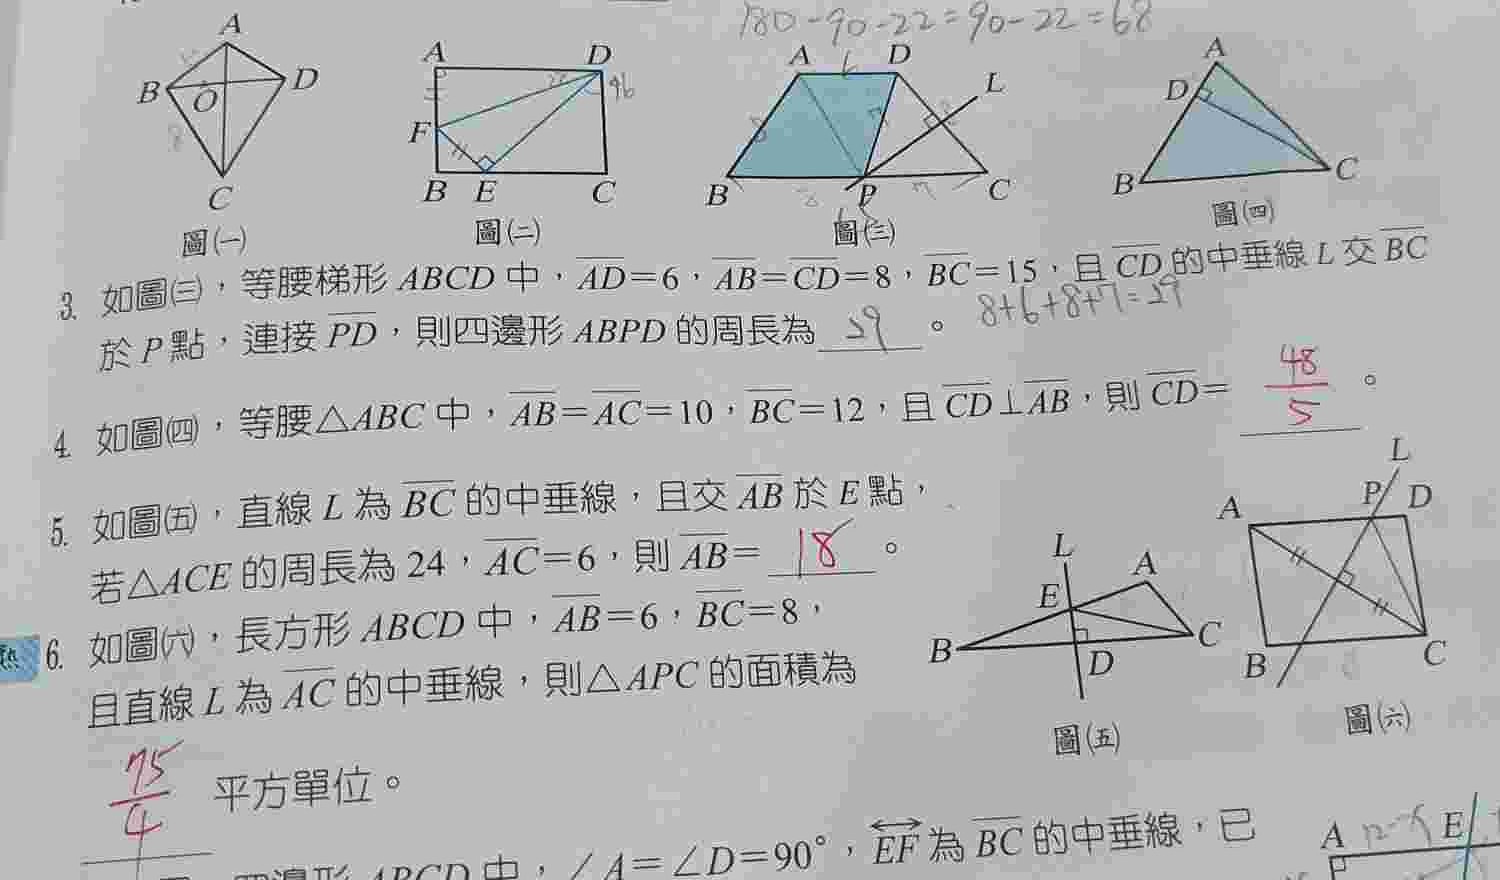 180-90-22=90-22=68
A
B
O
D
C
圖(一)
A
D
F
B E C
圖(二)
A 6 D
L
B P C
圖(三)
A
D
B
C
圖(四)
3. 如圖(三),等腰梯形 ABCD 中,AD=6,AB=CD=8,BC=15,且 CD 的中垂線 L 交 BC
於 P 點,連接 PD,則四邊形 ABPD 的周長為 29 。 8+6+8+7=29
4. 如圖(四),等腰△ABC 中,AB=AC=10,BC=12,且 CD⊥AB,則 CD= 48/5 。
5. 如圖(五),直線 L 為 BC 的中垂線,且交 AB 於 E 點,
若△ACE 的周長為 24,AC=6,則 AB= 18 。
L
E
A
B
D
C
圖(五)
L
A
P D
B
C
圖(六)
熟 6. 如圖(六),長方形 ABCD 中,AB=6,BC=8,
且直線 L 為 AC 的中垂線,則△APC 的面積為
75/4 平方單位。
四邊形 ABCD 中,∠A=∠D=90°,EF 為 BC 的中垂線,已
A
E